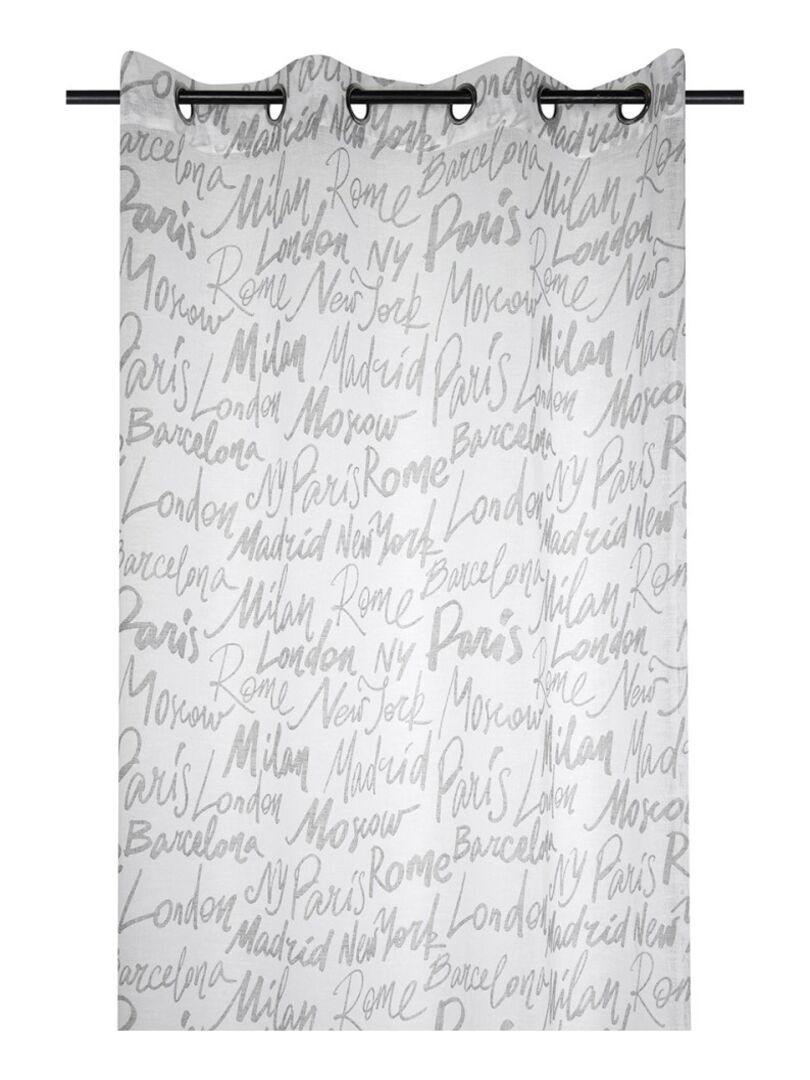 London Paris London
Madrid New York Madrid
Barcelona Milan Rome Barcelona Milan
Paris London NY Paris London
Moscow Rome New York Moscow Rome New
Milan Madrid Milan
Paris London Moscow Paris
Barcelona Barcelona
London NY Paris Rome London NY Paris
Madrid New York Madrid New
Barcelona Milan Rome Barcelona Milan Rome
Paris London NY Paris London
Moscow Rome New York Moscow Rome New
Milan Madrid Milan Madrid
Paris London Moscow Paris Moscow
Barcelona Barcelona
London NY Paris Rome London NY Paris
Madrid New York Madrid New
Barcelona Milan Rome Barcelona Milan Rom